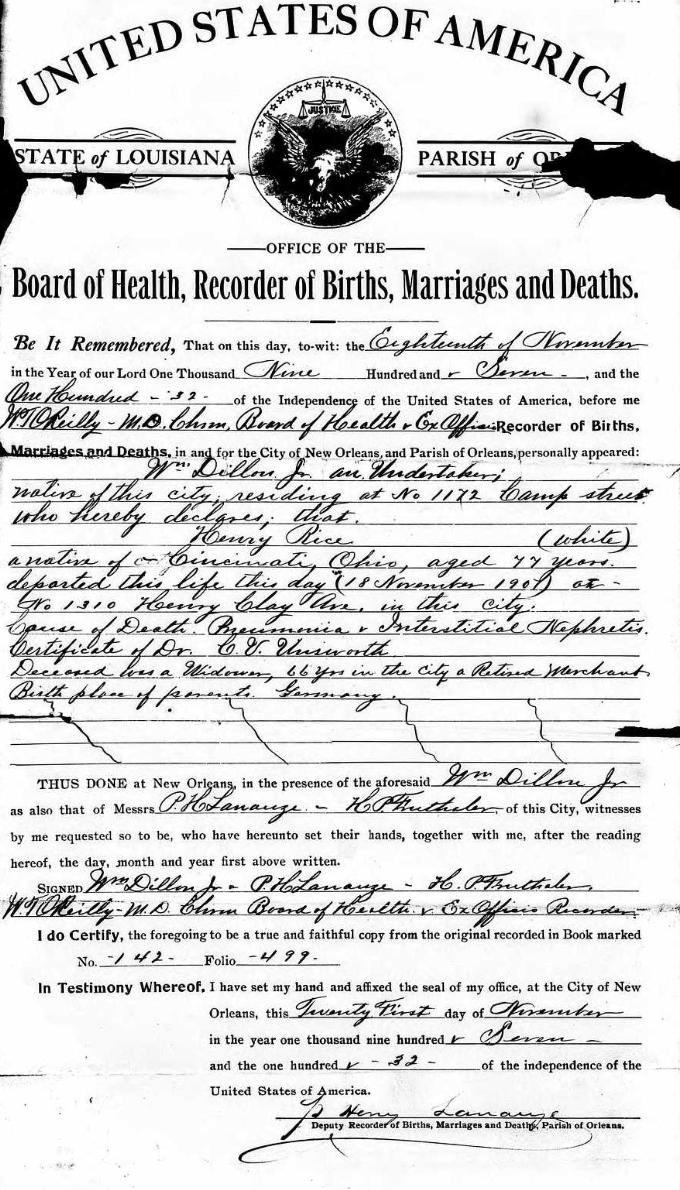 UNITED STATES OF AMERICA
JUSTICE
STATE of LOUISIANA PARISH of
OFFICE OF THE
Board of Health, Recorder of Births, Marriages and Deaths.
Be It Remembered, That on this day, to-wit: the Eighteenth of November
in the Year of our Lord One Thousand Nine Hundred and Seven - , and the
One Hundred - 32 - of the Independence of the United States of America, before me
W. T. O'Reilly - M.D. Chrm. Board of Health & Ex Officio Recorder of Births,
Marriages and Deaths, in and for the City of New Orleans, and Parish of Orleans, personally appeared:
Wm Dillon Jr. an Undertaker;
native of this city, residing at No 1172 Camp street
who hereby declares; that.
Henry Rice (white)
a native of Cincinati, Ohio, aged 77 years.
departed this life this day (18 November 1907) at -
No 1310 Henry Clay Ave. in this city.
Cause of Death. Pneumonia & Interstitial Nephretis.
Certificate of Dr. C. V. Unsworth
Deceased was a Widower, 66 yrs in the city a Retired Merchant
Birth place of parents. Germany.
THUS DONE at New Orleans, in the presence of the aforesaid Wm Dillon Jr
as also that of Messrs P. H. Lanauze - H. P. of this City, witnesses
by me requested so to be, who have hereunto set their hands, together with me, after the reading
hereof, the day, month and year first above written.
SIGNED Wm Dillon Jr - P. H Lanauze - H. P.
W. T. O'Reilly - M.D. Chrm Board of Health & Ex Officio Recorder -
I do Certify, the foregoing to be a true and faithful copy from the original recorded in Book marked
No. - 142 - Folio - 499 -
In Testimony Whereof, I have set my hand and affixed the seal of my office, at the City of New
Orleans, this Twenty First day of November
in the year one thousand nine hundred & Seven -
and the one hundred & - 32 - of the independence of the
United States of America.
P. Henry Lanauze
Deputy Recorder of Births, Marriages and Deaths, Parish of Orleans.